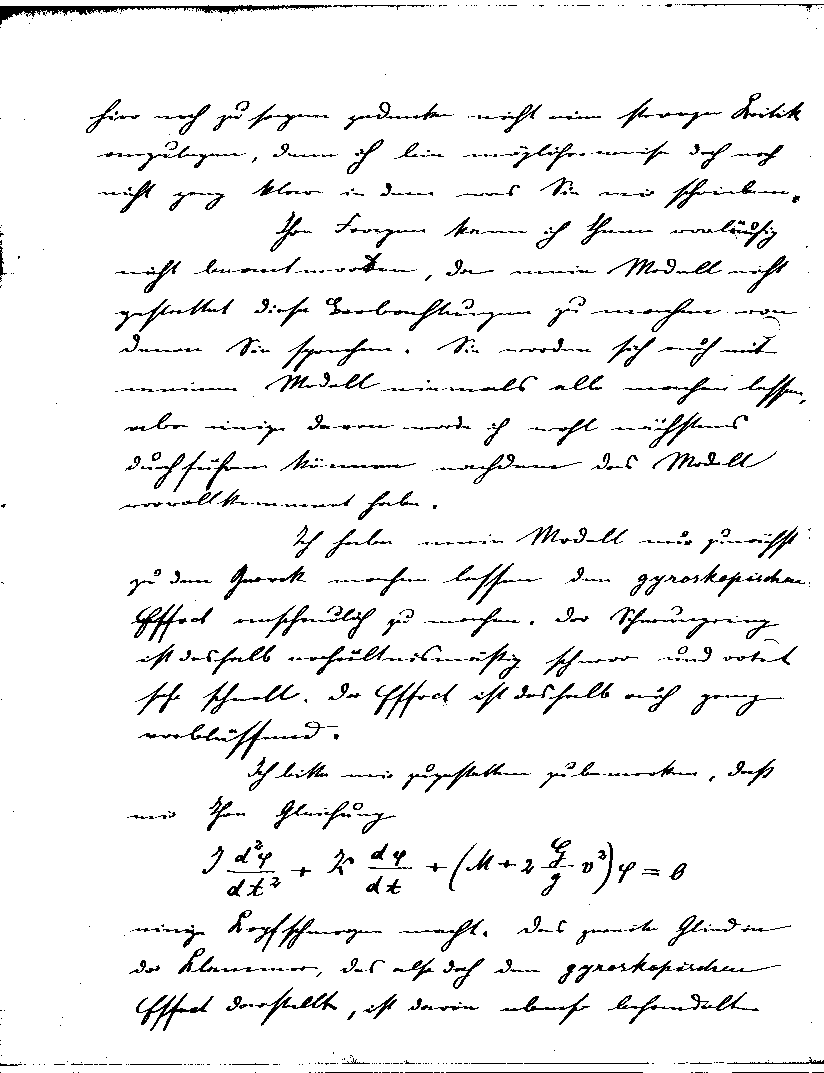 hier noch zu sagen gedenke nicht eine strenge Kritik
anzulegen, denn ich bin möglicherweise doch noch
nicht ganz klar in dem was Sie mir schrieben.
Ihre Fragen kann ich Ihnen vorläufig
nicht beantworten, da mein Modell nicht
gestattet diese Beobachtungen zu machen von
denen Sie sprechen. Sie werden sich auch mit
meinem Modell niemals alle machen lassen,
aber einige davon werde ich wohl nächstens
durchführen können nachdem das Modell
vervollkommnet habe.
Ich habe mein Modell nur zunächst
zu dem Zweck machen lassen den gyroskopischen
Effect anschaulich zu machen. Der Schwungring
ist deshalb verhältnismäßig schwer und rotiert
sehr schnell. Der Effect ist deshalb auch ganz
verblüffend.
Ich bitte mir zu gestatten zu bemerken, daß
mir Ihre Gleichung
J d²φ/dt² + K dφ/dt + (M + 2 G/g v²) φ = 0
einige Kopfschmerzen macht. Das zweite Glied in
der Klammer, das also doch den gyroskopischen
Effect darstellt, ist darin ebenso behandelt